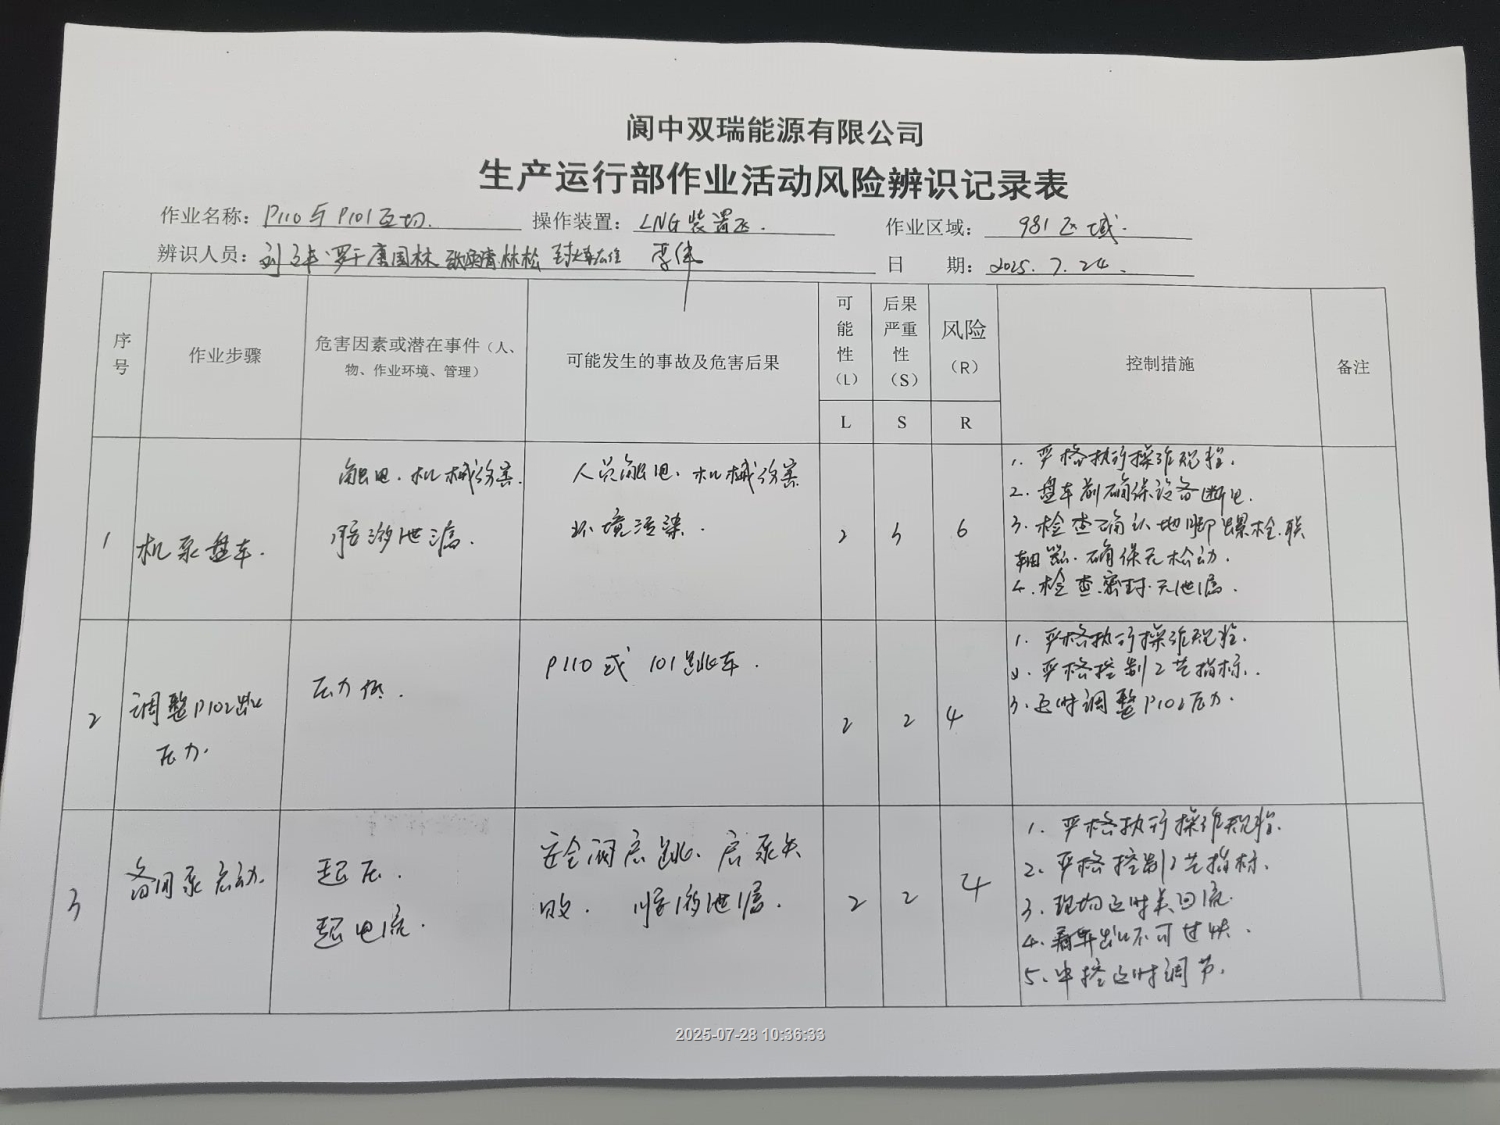 阆中双瑞能源有限公司
生产运行部作业活动风险辨识记录表
作业名称：P110与P101互切. 操作装置：LNG装置区. 作业区域：981区域.
辨识人员： 唐国林 林松 李伟 日 期：2025.7.24.
序号 作业步骤 危害因素或潜在事件（人、物、作业环境、管理） 可能发生的事故及危害后果 可能性（L） 后果严重性（S） 风险（R） 控制措施 备注
L S R
1 机泵盘车. 触电、机械伤害. 人员触电、机械伤害 2 3 6 1. 严格执行操作规程.
胺液泄漏. 环境污染. 2. 盘车前确保设备断电.
3. 检查确认地脚螺栓、联
轴器、确保无松动.
4. 检查密封无泄漏.
2 调整P102出口 压力低. P110或101跳车. 2 2 4 1. 严格执行操作规程.
压力. 2. 严格控制工艺指标.
3. 及时调整P102压力.
3 备用泵启动. 超压. 安全阀启跳、启泵失 2 2 4 1. 严格执行操作规程.
超电流. 败. 胺液泄漏. 2. 严格控制工艺指标.
3. 现场及时关回流.
4. 出口不可过快.
5. 中控及时调节.
2025-07-28 10:36:33